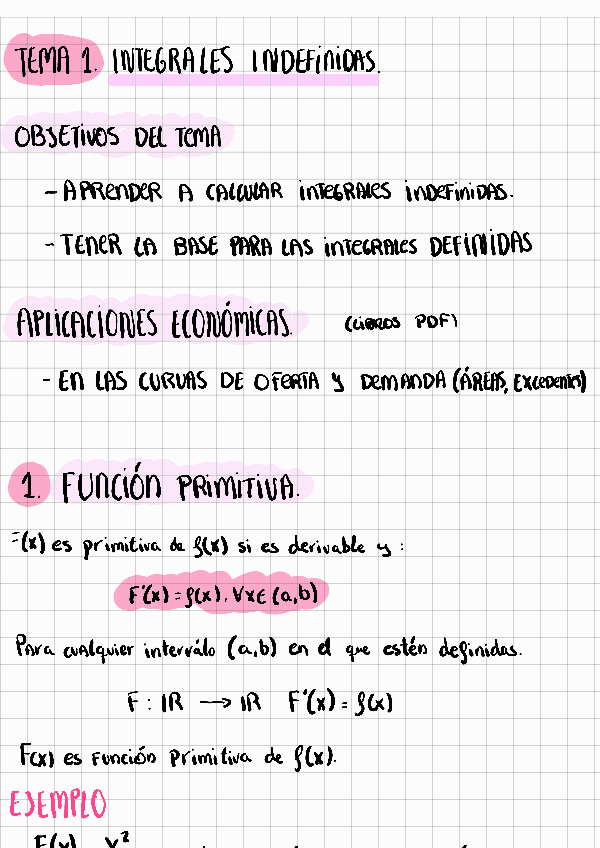 TEMA 1. INTEGRALES INDEFINIDAS.
OBJETIVOS DEL TEMA
- APRENDER A CALCULAR INTEGRALES INDEFINIDAS.
- TENER LA BASE PARA LAS INTEGRALES DEFINIDAS
APLICACIONES ECONÓMICAS. (LIBROS PDF)
- EN LAS CURVAS DE OFERTA Y DEMANDA (ÁREAS, EXCEDENTES)
1. FUNCIÓN PRIMITIVA.
F(x) es primitiva de f(x) si es derivable y :
F'(x) = f(x), ∀x ∈ (a,b)
Para cualquier interválo (a,b) en el que estén definidas.
F : IR → IR F'(x) = f(x)
F(x) es Función Primitiva de f(x).
EJEMPLO
F(x) x²